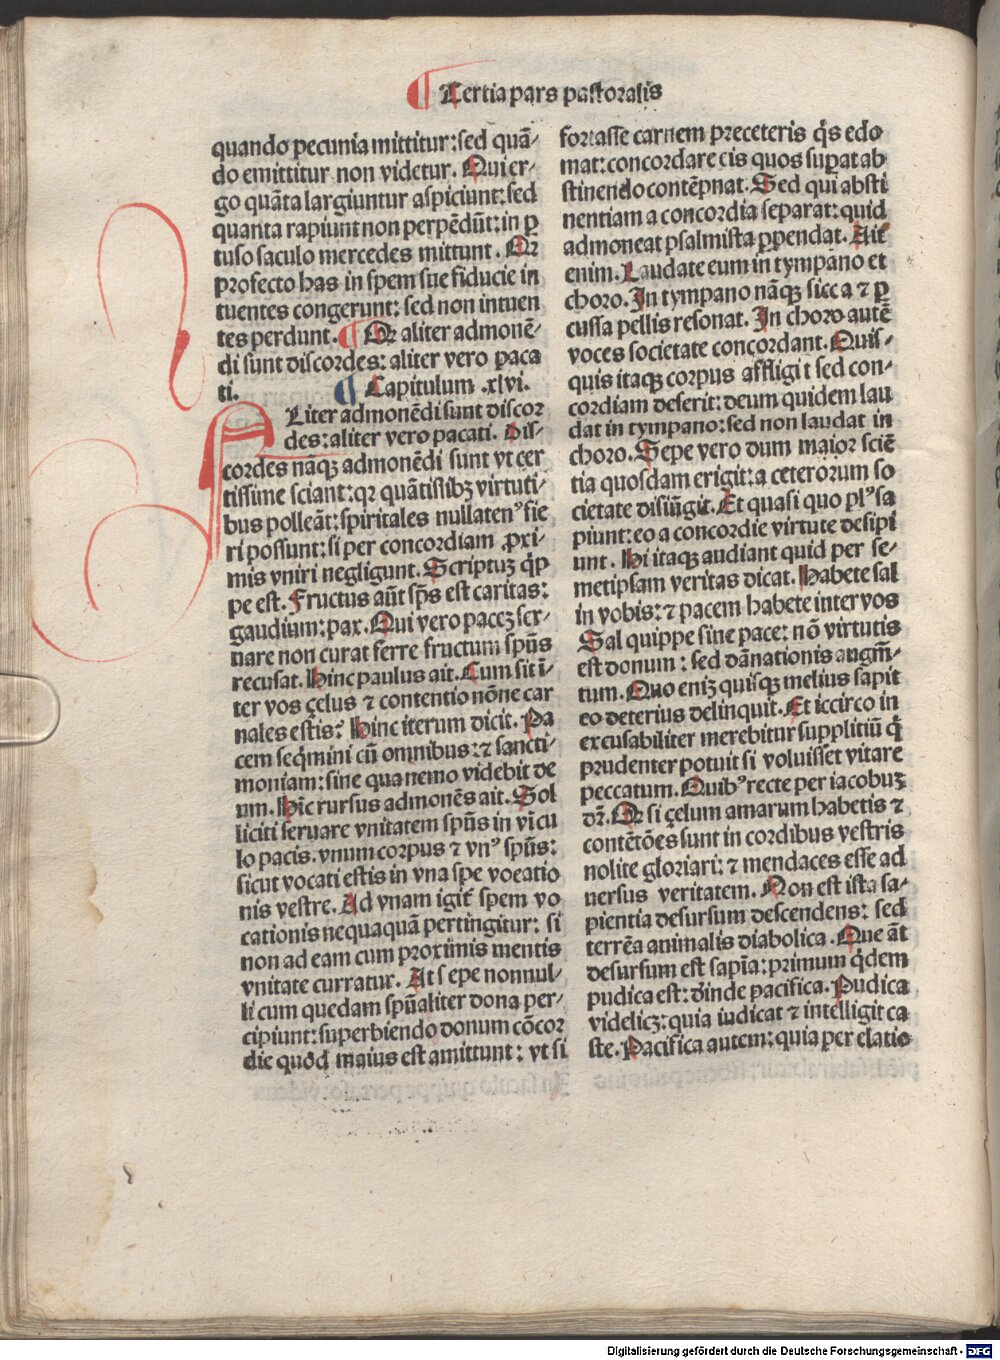 ¶ Tertia pars pastoralis
quando pecunia mittitur: sed quā-
do emittitur non videtur. Qui er-
go quāta largiuntur aspiciunt: sed
quanta rapiunt non perpēdūt: in ꝑ
tuso saculo mercedes mittunt. Qꝛ
profecto has in spem sue fiducie in
tuentes congerunt: sed non intuen
tes perdunt. ¶ Qꝛ aliter admonē-
di sunt discordes: aliter vero paca
ti. ¶ Capitulum .xlvi.
ALiter admonēdi sunt discor
des: aliter vero pacati. Dis-
cordes nāqꝫ admonēdi sunt vt cer
tissime sciant: qꝛ quātislibꝫ virtuti-
bus polleāt: spiritales nullatenꝰ fie
ri possunt: si per concordiam ꝓxi-
mis vniri negligunt. Scriptuꝫ q̄p
pe est. Fructus aūt sp̄s est caritas:
gaudium: pax. Qui vero paceꝫ ser-
uare non curat ferre fructum spūs
recusat. Hinc paulus ait. Cum sit ī-
ter vos çelus ⁊ contentio nōne car
nales estis? Hinc iterum dicit. Pa
cem seq̄mini cū omnibus: ⁊ sancti-
moniam: sine qua nemo videbit de
um. Hīc rursus admonēs ait. Sol
liciti seruare vnitatem spūs in vicu
lo pacis. vnum corpus ⁊ vnꝰ spūs:
sicut vocati estis in vna spe voeatio
nis vestre. Ad vnam igit᷑ spem vo
cationis nequaquā pertingitur: si
non ad eam cum proximis mentis
vnitate curratur. At s epe nonnul-
li cum quedam spūaliter dona per-
cipiunt: superbiendo donum cōcor
die quod maius est amittunt: vt si
fortasse carnem preceteris q̄s edo
mat: concordare eis quos suꝑat ab
stinendo contēpnat. Sed qui absti
nentiam a concordia separat: quid
admoneat psalmista ꝑpendat. Ait
enim. Laudate eum in tympano et
choro. In tympano nāqꝫ sicca ⁊ ꝑ
cussa pellis resonat. In choro autē
voces societate concordant. Quis-
quis itaqꝫ corpus affligi t sed con-
cordiam deserit: deum quidem lau
dat in tympano: sed non laudat in
choro. Sepe vero dum maior sciē
tia quosdam erigit: a ceterorum so
cietate disiūgit. Et quasi quo plꝰ sa
piunt: eo a concordie virtute desipi
unt. Hi itaqꝫ audiant quid per se-
metipsam veritas dicat. Habete sal
in vobis: ⁊ pacem habete inter vos
Sal quippe sine pace: nō virtutis
est donum: sed dānationis augm̄-
tum. Quo eniꝫ quisqꝫ melius sapit
eo deterius delinquit. Et iccirco in
excusabiliter merebitur supplitiū q̄
prudenter potuit si voluisset vitare
peccatum. Quibꝰ recte per iacobuꝫ
dꝛ̄. Qꝛ si çelum amarum habetis ⁊
contētōes sunt in cordibus vestris
nolite gloriari: ⁊ mendaces esse ad
uersus veritatem. Non est ista sa-
pientia desursum descendens: sed
terrēa animalis diabolica. Que āt
desursum est sapīa: primum q̄dem
pudica est: dīnde pacifica. Pudica
videlicꝫ: quia iudicat ⁊ intelligit ca
ste. Pacifica autem: quia per elatio
Digitalisierung gefördert durch die Deutsche Forschungsgemeinschaft - DFG